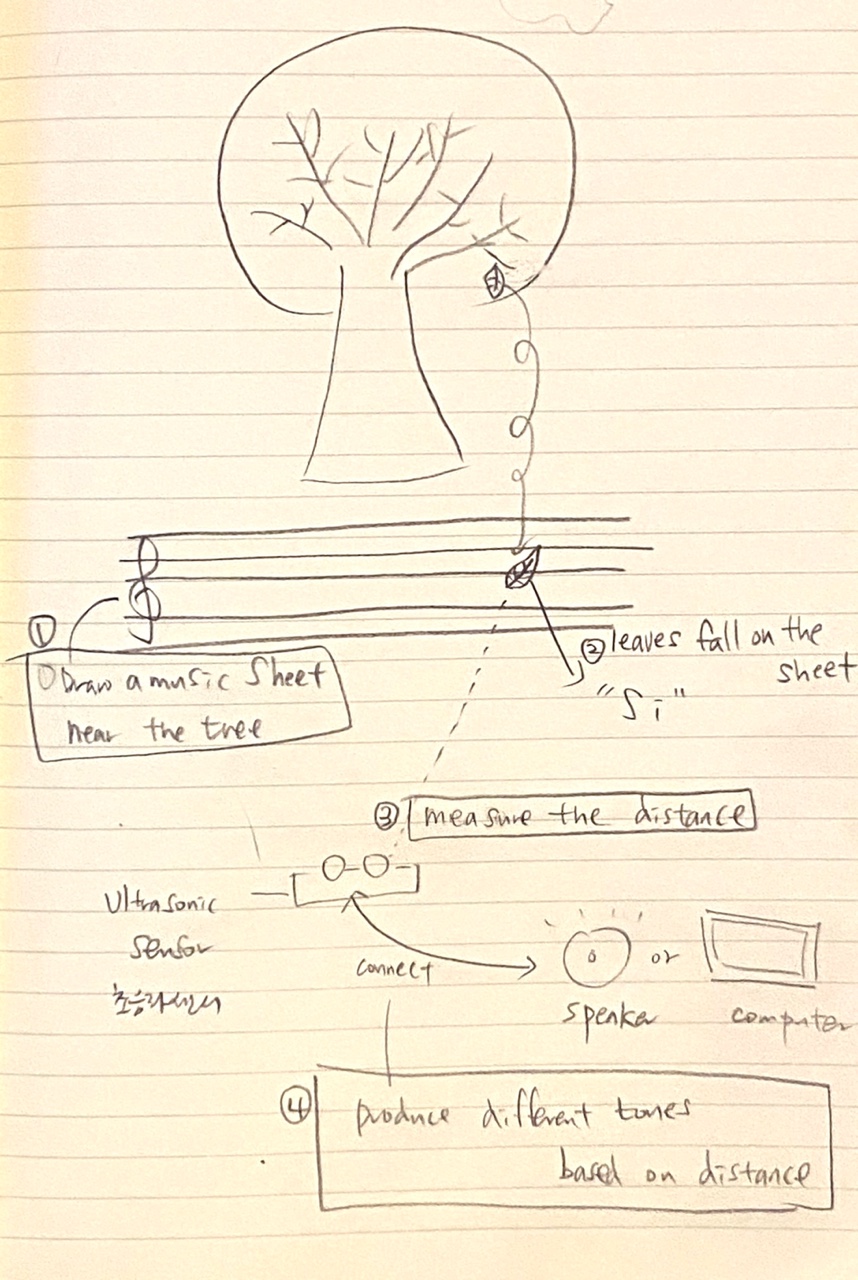 ①
Draw a music sheet
near the tree
② leaves fall on the
sheet
"Si"
③ measure the distance
Ultrasonic
Sensor
초음파센서
connect
or
speaker
computer
④
produce different tones
based on distance